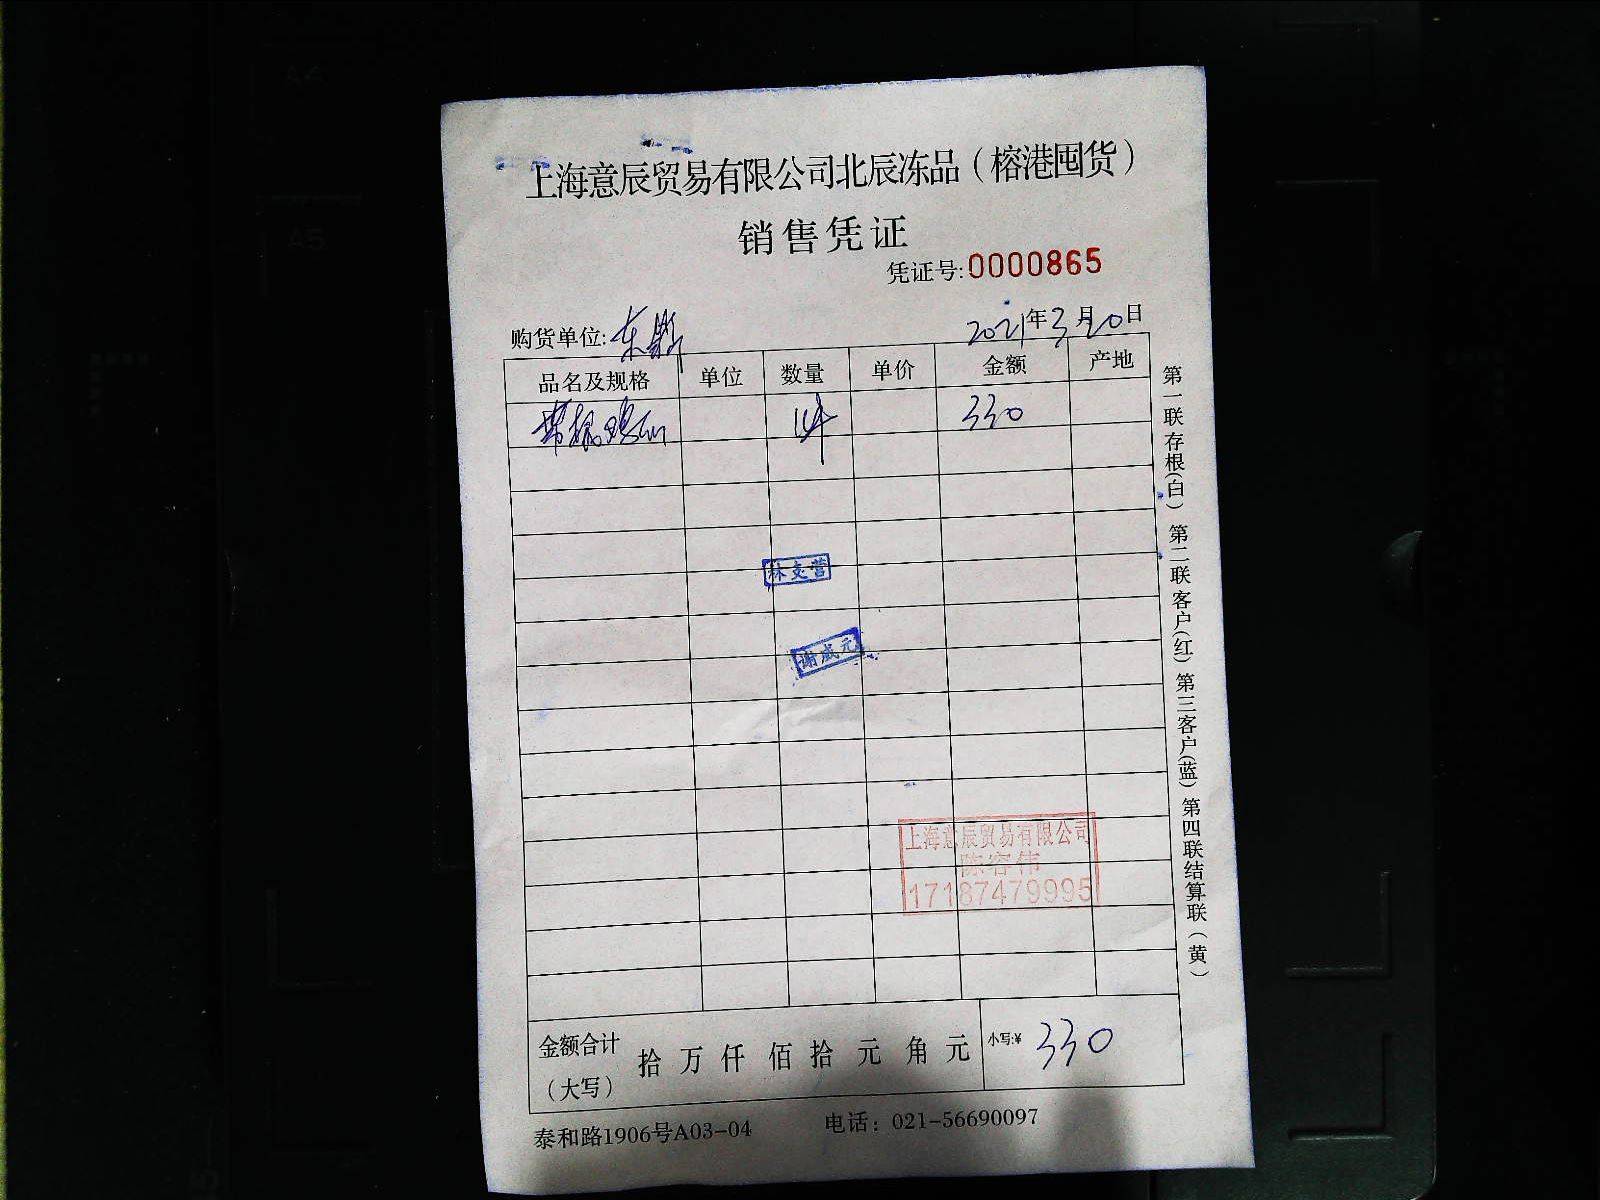 上海意辰贸易有限公司北辰冻品（榕港囤货）
销售凭证
凭证号:0000865
购货单位: 东 2021年3月20日
品名及规格 单位 数量 单价 金额 产地
1件 330
林交营
谢成元
上海意辰贸易有限公司
陈容伟
17187479995
金额合计（大写） 拾 万 仟 佰 拾 元 角 元 小写:¥ 330
泰和路1906号A03-04 电话：021-56690097
第一联存根(白) 第二联客户(红) 第三客户(蓝) 第四联结算联(黄)